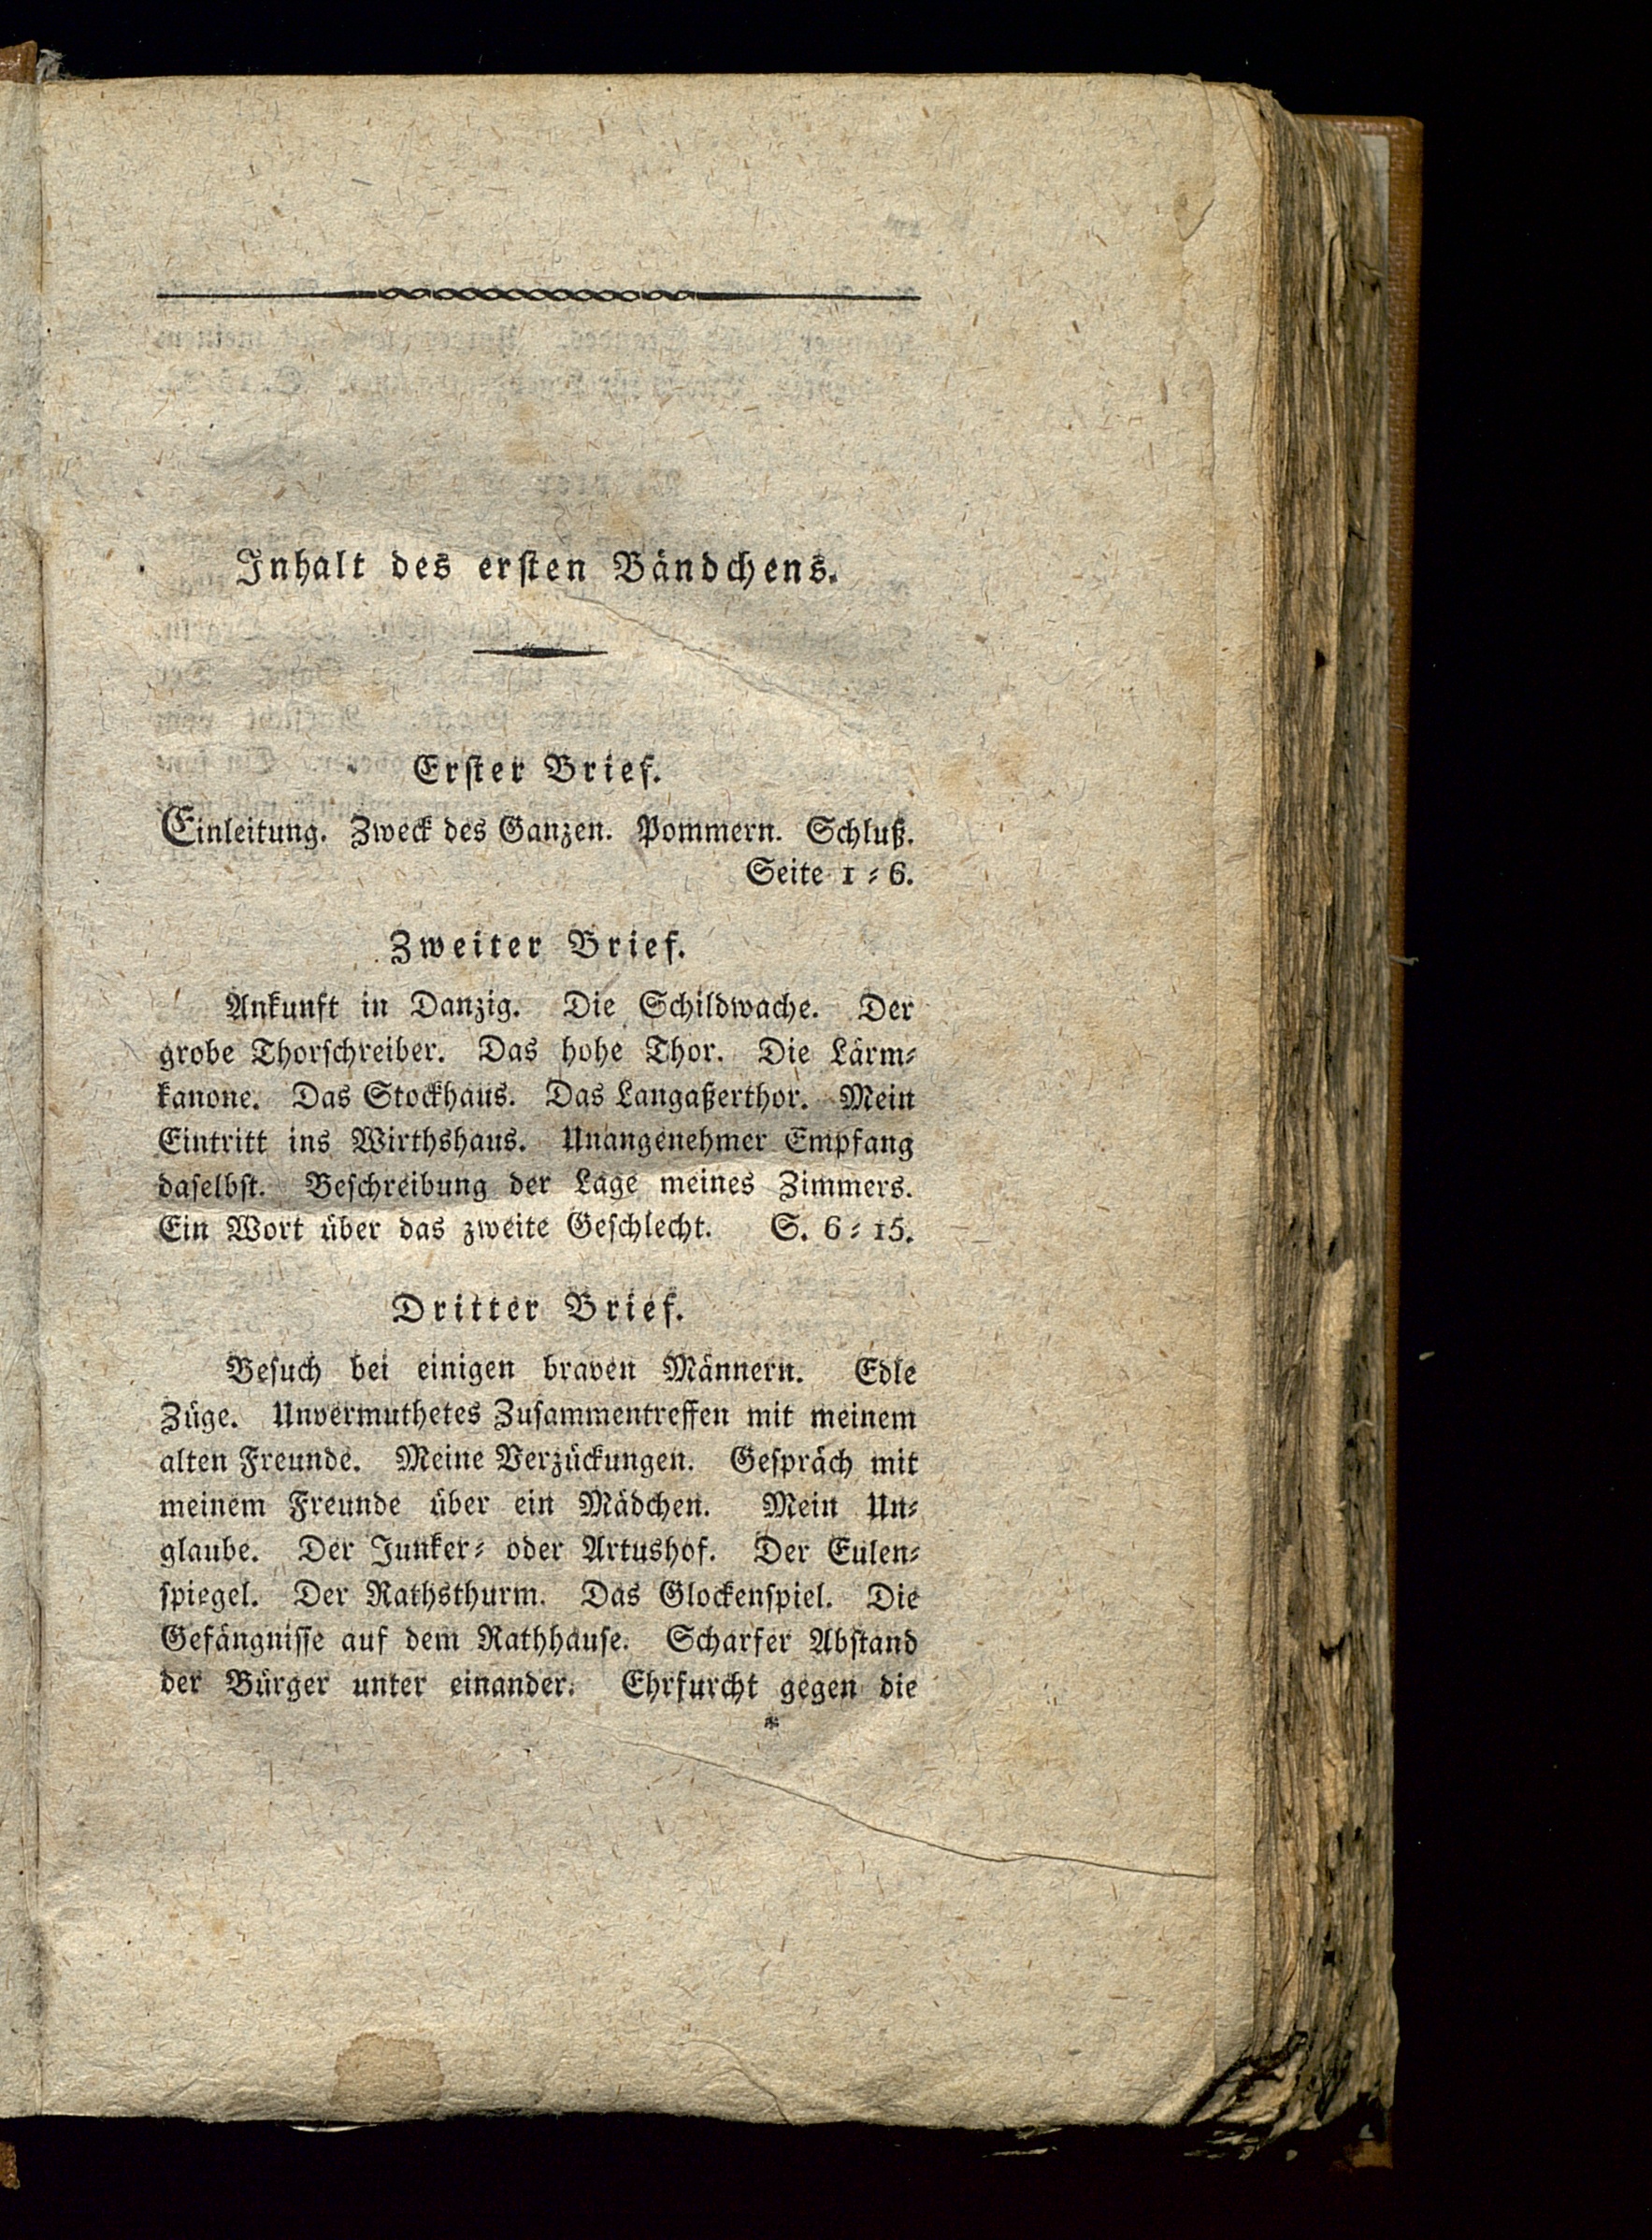 Inhalt des ersten Bändchens.
Erster Brief.
Einleitung. Zweck des Ganzen. Pommern. Schluß.
Seite 1 = 6.
Zweiter Brief.
Ankunft in Danzig. Die Schildwache. Der
grobe Thorschreiber. Das hohe Thor. Die Lärm=
kanone. Das Stockhaus. Das Langaßerthor. Mein
Eintritt ins Wirthshaus. Unangenehmer Empfang
daselbst. Beschreibung der Lage meines Zimmers.
Ein Wort über das zweite Geschlecht. S. 6 = 15.
Dritter Brief.
Besuch bei einigen braven Männern. Edle
Züge. Unvermuthetes Zusammentreffen mit meinem
alten Freunde. Meine Verzückungen. Gespräch mit
meinem Freunde über ein Mädchen. Mein Un=
glaube. Der Junker= oder Artushof. Der Eulen=
spiegel. Der Rathsthurm. Das Glockenspiel. Die
Gefängnisse auf dem Rathhause. Scharfer Abstand
der Bürger unter einander. Ehrfurcht gegen die
*